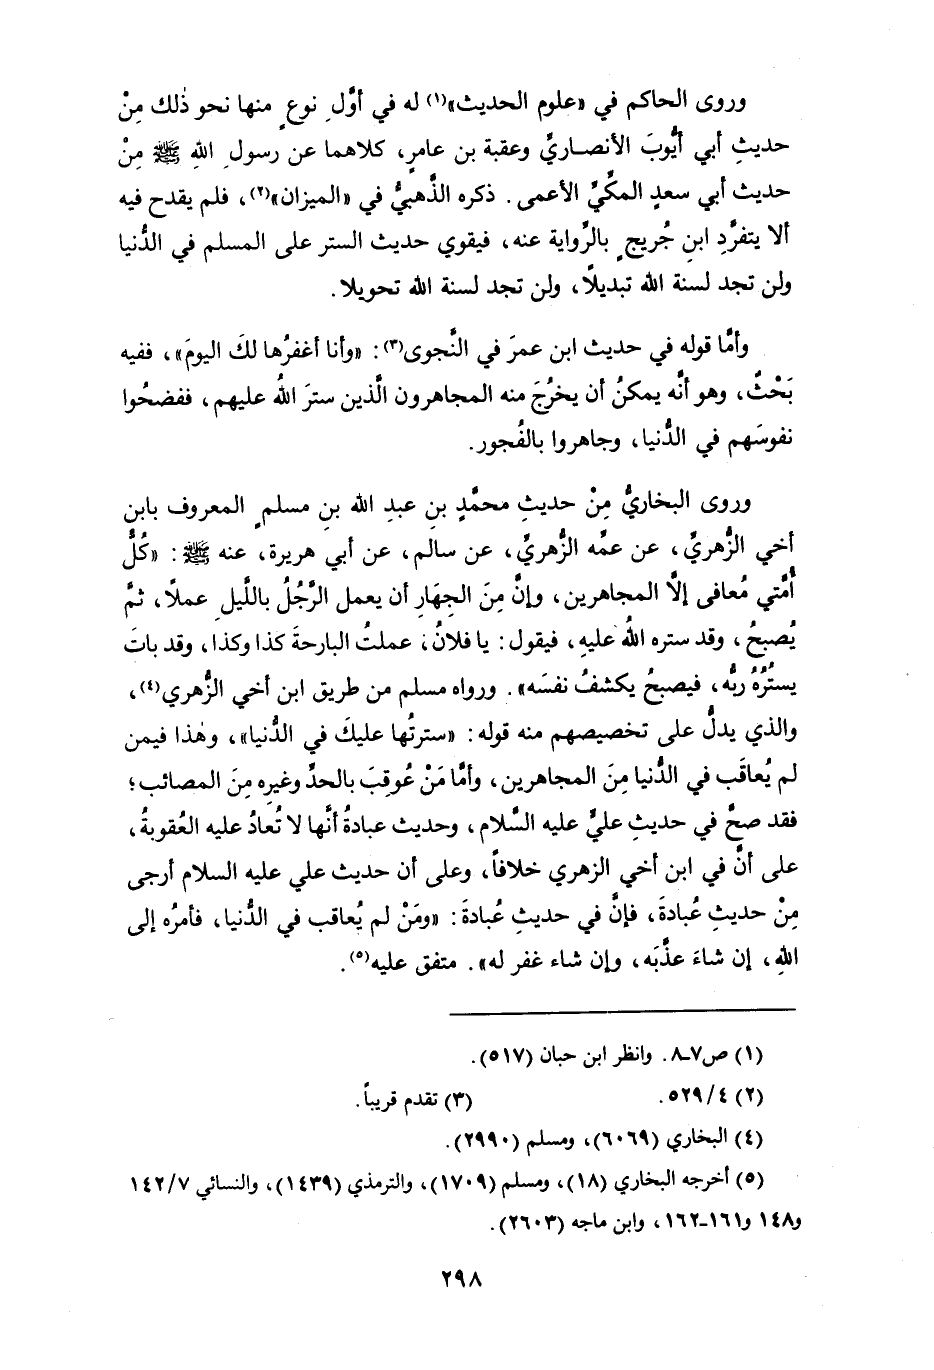 وروى الحاكم في «علوم الحديث»(١) له في أوَّلِ نوعٍ منها نحو ذٰلك مِنْ
حديثِ أبي أيُّوبَ الأنصاريِّ وعقبة بن عامرٍ، كلاهما عن رسولِ اللهِ ﷺ مِنْ
حديث أبي سعدٍ المكِّيِّ الأعمى. ذكره الذَّهبيُّ في «الميزان»(٢)، فلم يقدح فيه
ألا يتفرَّدِ ابنِ جُريجٍ بالرِّواية عنه، فيقوي حديث الستر على المسلم في الدُّنيا
ولن تجد لسنة الله تبديلًا، ولن تجد لسنة الله تحويلا.
وأمَّا قوله في حديث ابن عمرَ في النَّجوى(٣): «وأنا أغفرُها لكَ اليومَ»، ففيه
بَحْثٌ، وهو أنَّه يمكنُ أن يخرُجَ منه المجاهرون الَّذين سترَ اللهُ عليهم، ففضحُوا
نفوسَهم في الدُّنيا، وجاهروا بالفُجور.
وروى البخاريُّ مِنْ حديثِ محمَّدِ بنِ عبدِ الله بنِ مسلمٍ المعروف بابن
أخي الزُّهريِّ، عن عمِّه الزُّهريِّ، عن سالم، عن أبي هريرة، عنه ﷺ: «كُلُّ
أُمَّتي مُعافى إلَّا المجاهرين، وإنَّ مِنَ الجِهَارِ أن يعمل الرَّجُلُ باللَّيلِ عملًا، ثمَّ
يُصبحُ، وقد ستره اللهُ عليه، فيقول: يا فلانُ، عملتُ البارحةَ كذا وكذا، وقد باتَ
يستُرُهُ ربُّه، فيصبحُ يكشفُ نفسَه». ورواه مسلم من طريق ابن أخي الزُّهري(٤)،
والذي يدلُّ على تخصيصهم منه قوله: «سترتُها عليكَ في الدُّنيا»، وهٰذا فيمن
لم يُعاقَب في الدُّنيا مِنَ المجاهرين، وأمَّا مَنْ عُوقِبَ بالحدِّ وغيرِه مِنَ المصائب؛
فقد صحَّ في حديثِ عليٍّ عليه السَّلام، وحديث عبادةُ أنَّها لا تُعادُ عليه العُقوبةُ،
على أنَّ في ابن أخي الزهري خلافاً، وعلى أن حديث علي عليه السلام أرجى
مِنْ حديثِ عُبادةَ، فإنَّ في حديثِ عُبادةَ: «ومَنْ لم يُعاقب في الدُّنيا، فأمرُه إلى
اللهِ، إن شاءَ عذَّبَه، وإن شاء غفر له». متفق عليه(٥).
(١) ص٧-٨. وانظر ابن حبان (٥١٧).
(٢) ٥٢٩/٤. (٣) تقدم قريباً.
(٤) البخاري (٦٠٦٩)، ومسلم (٢٩٩٠).
(٥) أخرجه البخاري (١٨)، ومسلم (١٧٠٩)، والترمذي (١٤٣٩)، والنسائي ١٤٢/٧
و١٤٨ و١٦١-١٦٢، وابن ماجه (٢٦٠٣).
٢٩٨